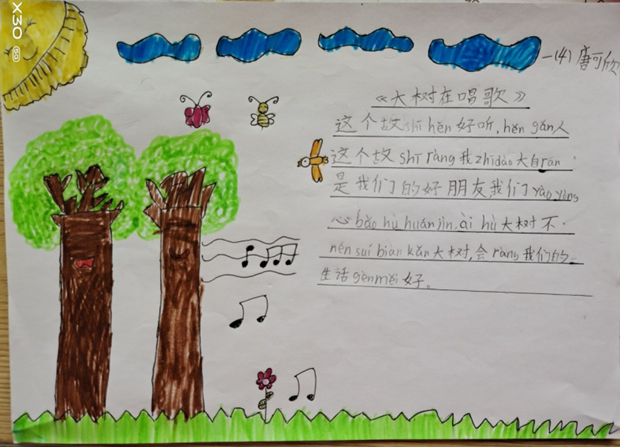 X30
一(4) 唐可欣
《大树在唱歌》
这个故shì hěn好听,hěn gǎn人
这个故shī ràng我zhīdào大自rán
是我们的好朋友我们yào yòng
心bǎo hù huánjìn,ài hù大树不
nén suí biàn kǎn大树,会ràng我们的
生活gènměi好。